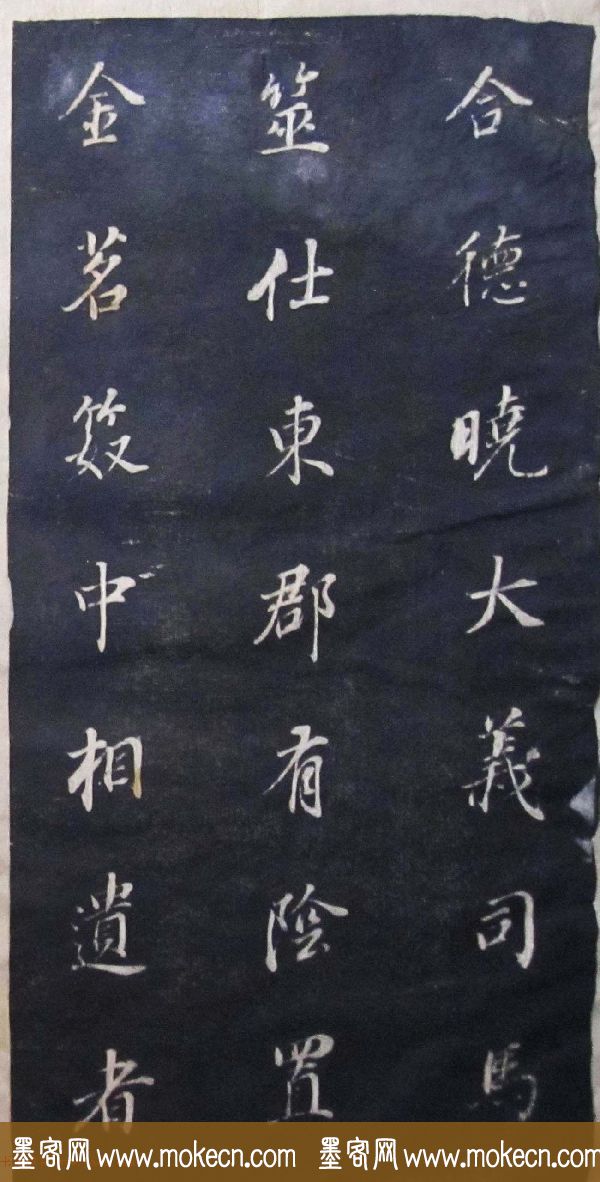 合德曉大義司馬
筮仕東郡有陰置
金茗笅中相遺者
墨客网 www.mokecn.com 墨客网 www.mokecn.com